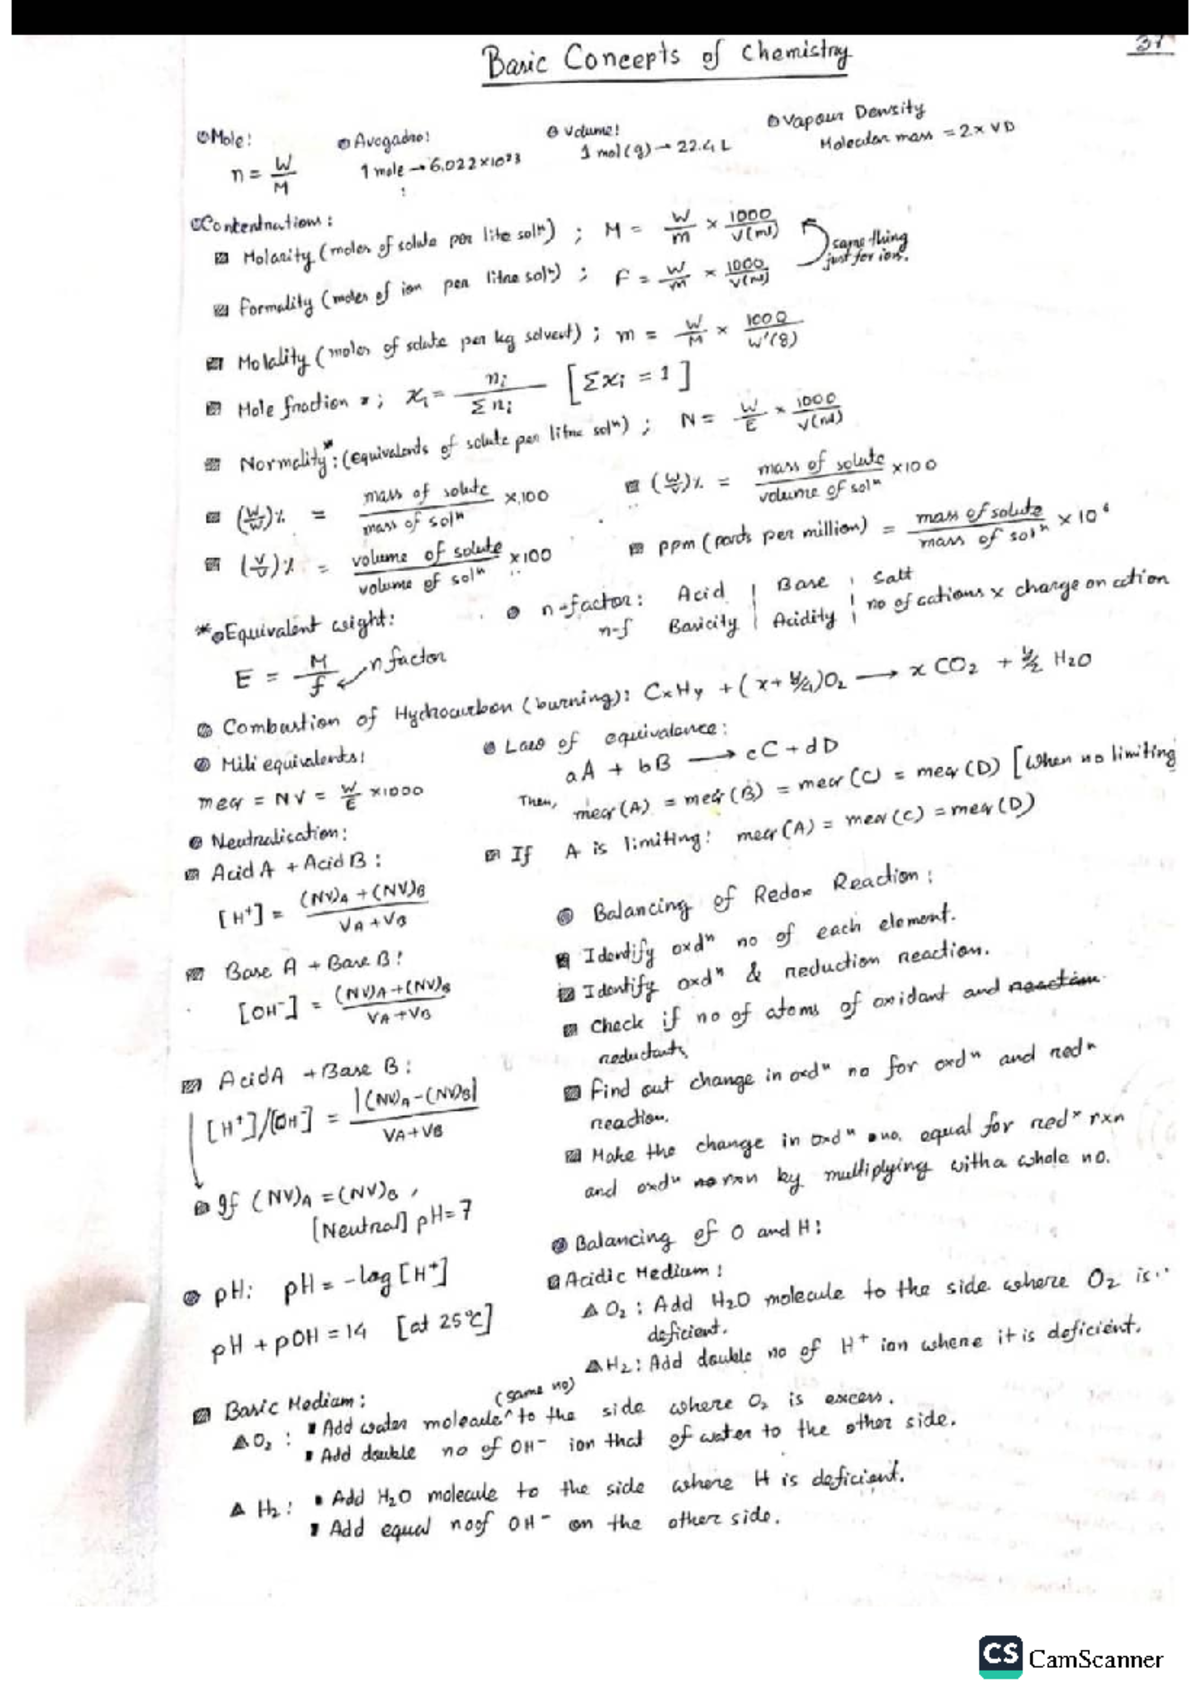 Basic Concepts of Chemistry
37
Mole:
n = W/M
Avogadro:
1 mole → 6.022×10²³
Volume:
1 mol(g) → 22.4 L
Vapour Density
Molecular mass = 2×VD
Contentnations:
Molarity (moles of solute per litre solⁿ) ; M = W/m × 1000/V(ml)
same thing
just for ion.
Formality (moles of ion per litre solⁿ) ; F = W/m × 1000/V(ml)
Molality (moles of solute per kg solvent) ; m = W/M × 1000/W'(g)
Mole fraction ; xᵢ = nᵢ/Σnᵢ [Σxᵢ = 1]
Normality* : (equivalents of solute per litre solⁿ) ; N = W/E × 1000/V(ml)
(W/W)% = mass of solute/mass of solⁿ ×100
(W/V)% = mass of solute/volume of solⁿ ×100
(V/V)% = volume of solute/volume of solⁿ ×100
ppm (parts per million) = mass of solute/mass of solⁿ × 10⁶
*Equivalent weight:
E = M/f n factor
n-factor: Acid | Base | Salt
n-f Basicity | Acidity | no of cations × charge on cation
Combustion of Hydrocarbon (burning): CxHy + (x + y/4)O₂ → x CO₂ + y/2 H₂O
Mili equivalents:
meqr = NV = W/E ×1000
Law of equivalence:
aA + bB → cC + dD
Then, meqr(A) = meqr(B) = meqr(C) = meqr(D) [When no limiting
If A is limiting: meqr(A) = meqr(C) = meqr(D)
Neutralisation:
Acid A + Acid B:
[H⁺] = (NV)A + (NV)B / VA + VB
Base A + Base B:
[OH⁻] = (NV)A + (NV)B / VA + VB
Acid A + Base B:
[H⁺]/[OH⁻] = |(NV)A − (NV)B| / VA + VB
If (NV)A = (NV)B ,
[Neutral] pH = 7
pH: pH = −log [H⁺]
pH + pOH = 14 [at 25°C]
Balancing of Redox Reaction:
Identify oxdⁿ no of each element.
Identify oxdⁿ & reduction reaction.
Check if no of atoms of oxidant and reaction
reductants
Find out change in oxdⁿ no for oxdⁿ and redⁿ
reaction.
Make the change in oxdⁿ no. equal for redⁿ rxn
and oxdⁿ rxn by multiplying with a whole no.
Balancing of O and H:
Acidic Medium:
O₂ : Add H₂O molecule to the side where O₂ is
deficient.
H₂ : Add double no of H⁺ ion where it is deficient.
Basic Medium:
(same no)
O₂ : Add water molecule ^ to the side where O₂ is excess.
Add double no of OH⁻ ion that of water to the other side.
H₂ : Add H₂O molecule to the side where H is deficient.
Add equal no of OH⁻ on the other side.
CS CamScanner